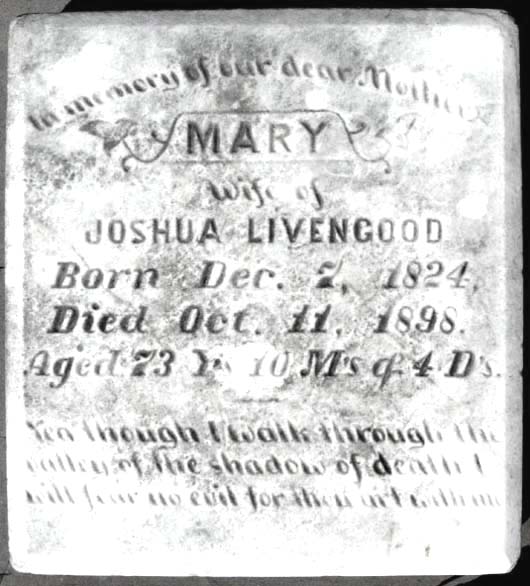 In memory of our dear Mother
MARY
Wife of
JOSHUA LIVENGOOD
Born Dec. 7, 1824,
Died Oct. 11, 1898.
Aged 73 Y's 10 M's & 4 D's.
Yea though I walk through the
valley of the shadow of death I
will fear no evil for thou art with me